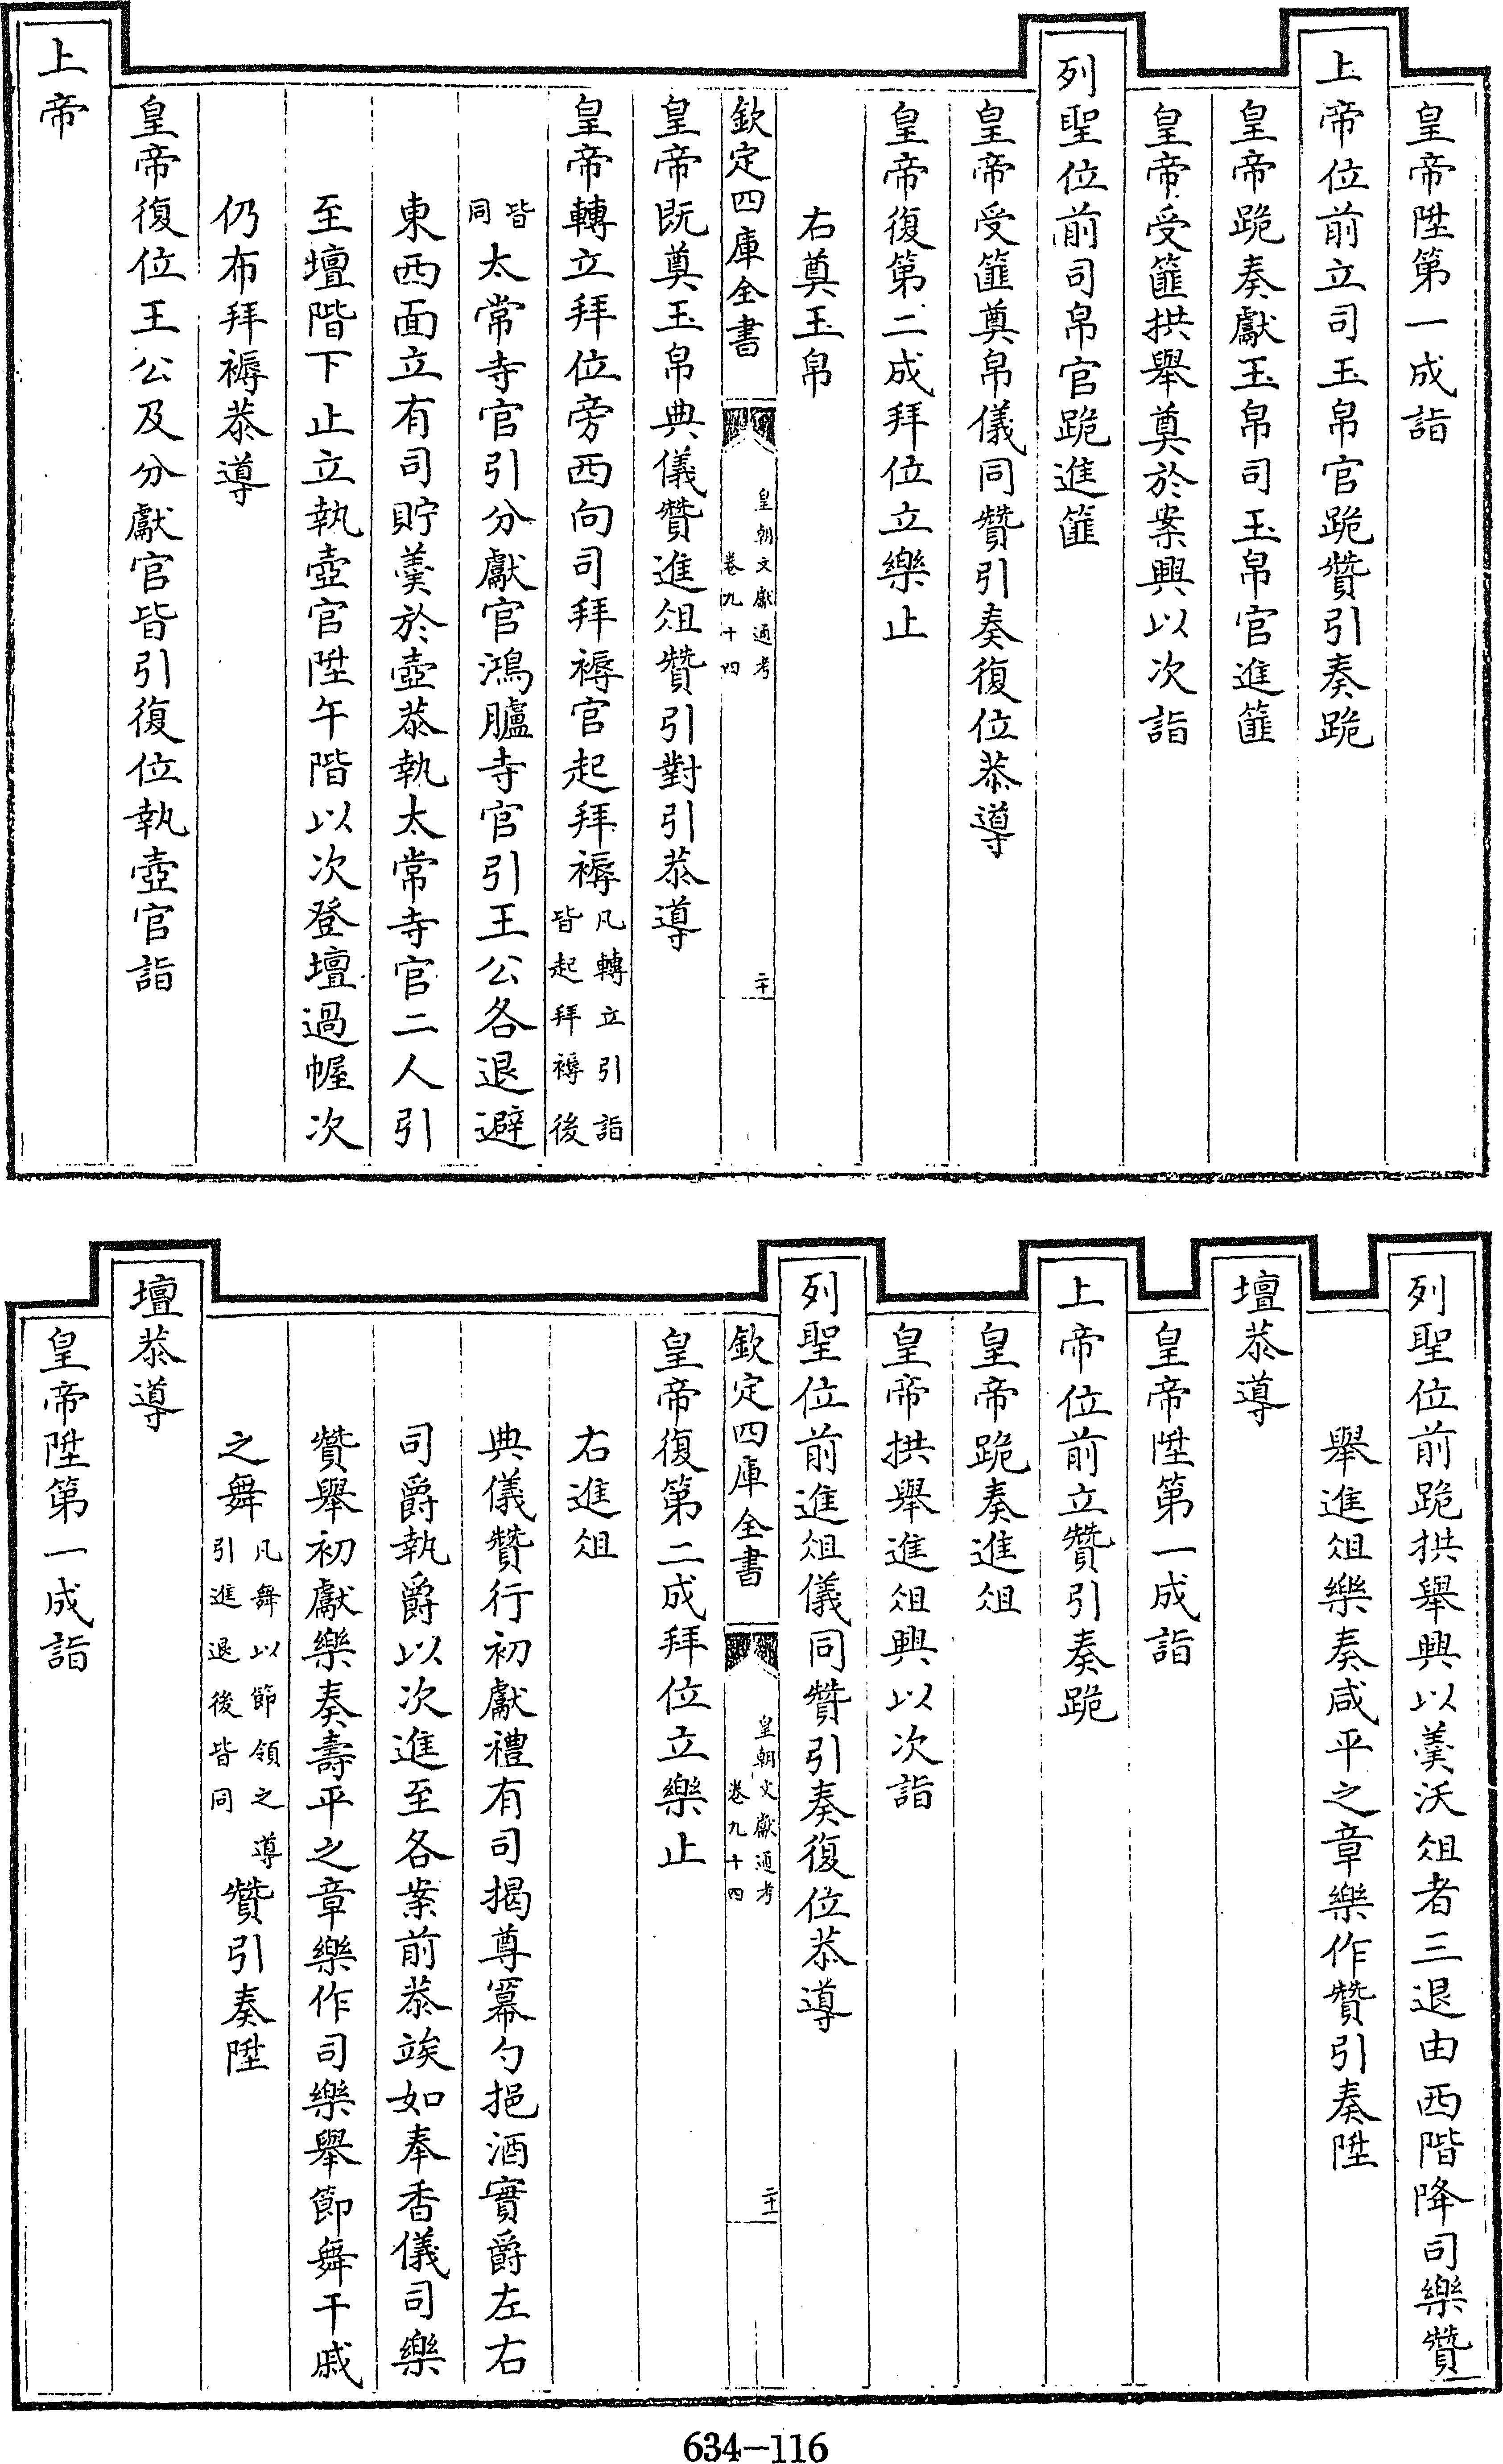 皇帝陞第一成詣
上帝位前立司玉帛官跪贊引奏跪
皇帝跪奏獻玉帛司玉帛官進篚
皇帝受篚拱舉奠於案興以次詣
列聖位前司帛官跪進篚
皇帝受篚奠帛儀同贊引奏復位恭導
皇帝復第二成拜位立樂止
右奠玉帛
欽定四庫全書 皇朝文獻通考 卷九十四 二十
皇帝既奠玉帛典儀贊進俎贊引對引恭導
皇帝轉立拜位旁西向司拜褥官起拜褥凡轉立引詣皆起拜褥後
皆同太常寺官引分獻官鴻臚寺官引王公各退避
東西面立有司貯羹於壺恭執太常寺官二人引
至壇階下止立執壺官陞午階以次登壇過幄次
仍布拜褥恭導
皇帝復位王公及分獻官皆引復位執壺官詣
上帝
列聖位前跪拱舉興以羹沃俎者三退由西階降司樂贊
舉進俎樂奏咸平之章樂作贊引奏陞
壇恭導
皇帝陞第一成詣
上帝位前立贊引奏跪
皇帝跪奏進俎
皇帝拱舉進俎興以次詣
列聖位前進俎儀同贊引奏復位恭導
欽定四庫全書 皇朝文獻通考 卷九十四 二十一
皇帝復第二成拜位立樂止
右進俎
典儀贊行初獻禮有司揭尊冪勺挹酒實爵左右
司爵執爵以次進至各案前恭竢如奉香儀司樂
贊舉初獻樂奏壽平之章樂作司樂舉節舞干戚
之舞凡舞以節領之導引進退後皆同贊引奏陞
壇恭導
皇帝陞第一成詣
634-116